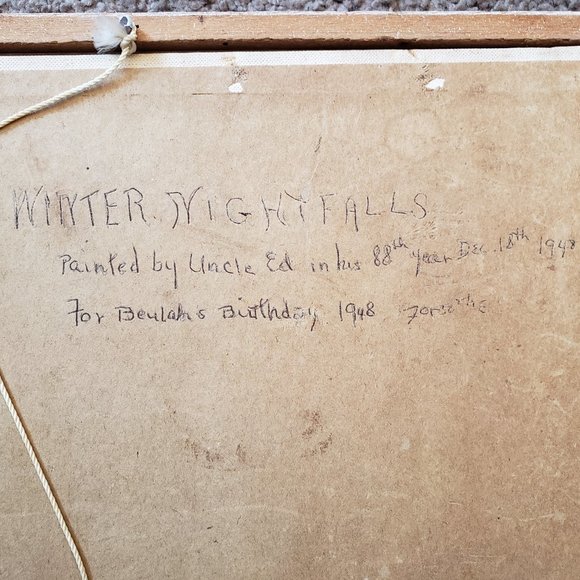 WINTER NIGHTFALLS
Painted by Uncle Ed in his 88th year Dec. 18th 1948
For Beulah's Birthday 1948